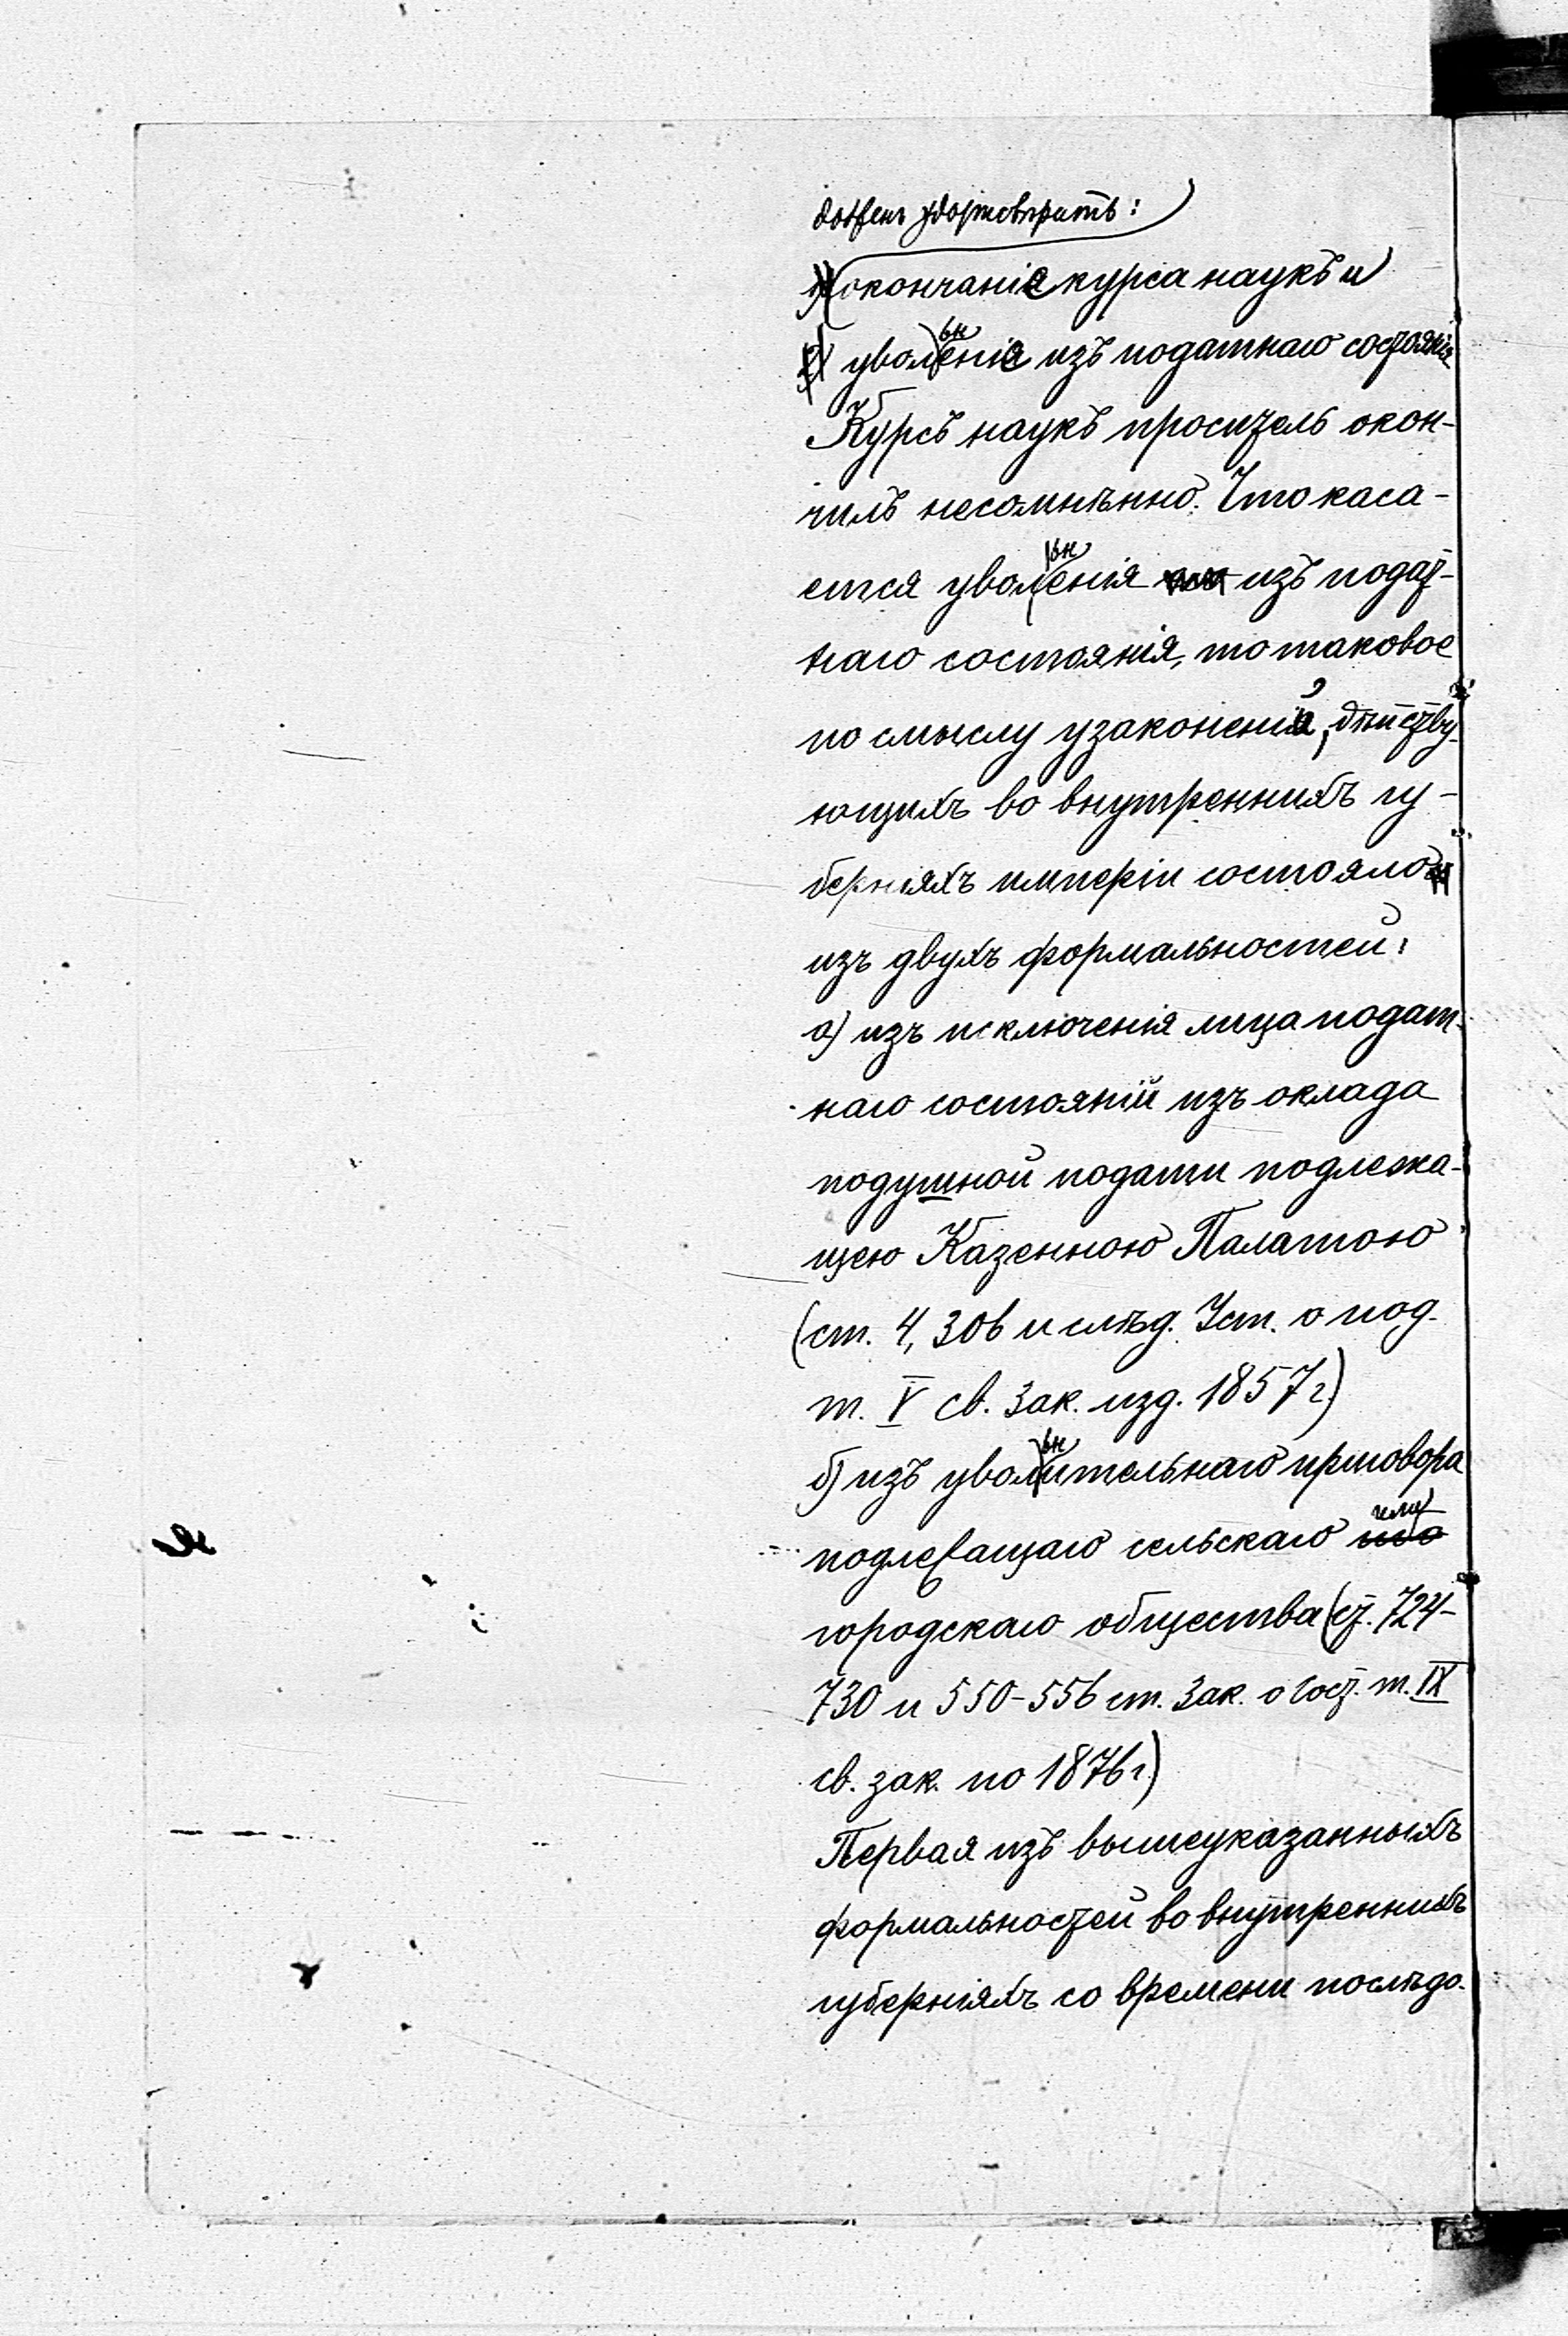 должен удостовѣрить:
1) окончаніе курса наукъ и
2) увольненіе из податнаго состоянія
Курсъ наукъ проситель окон-
чилъ несомнѣнно. Что каса-
ется увольненія изъ подат-
наго состоянія, то таковое
по смыслу узаконеній, дѣйству-
ющихъ во внутреннихъ гу-
берніяхъ имперіи состояло
изъ двухъ формальностей:
а) изъ исключенія лица подат-
наго состояній изъ оклада
подушной подати подлежа-
щею Казенною Палатою
(ст. 4, 306 и слѣд. Уст. о под.
т. V св. Зак. изд. 1857 г.)
б) изъ увольнительнаго приговора
подлежащаго сельскаго или
городскаго общества (ст. 724-
730 и 550-556 ст. Зак. о Сост. т. IX
св. зак. по 1876 г.)
Первая изъ вышеуказанныхъ
формальностей во внутреннихъ
губерніяхъ со времени послѣдо-